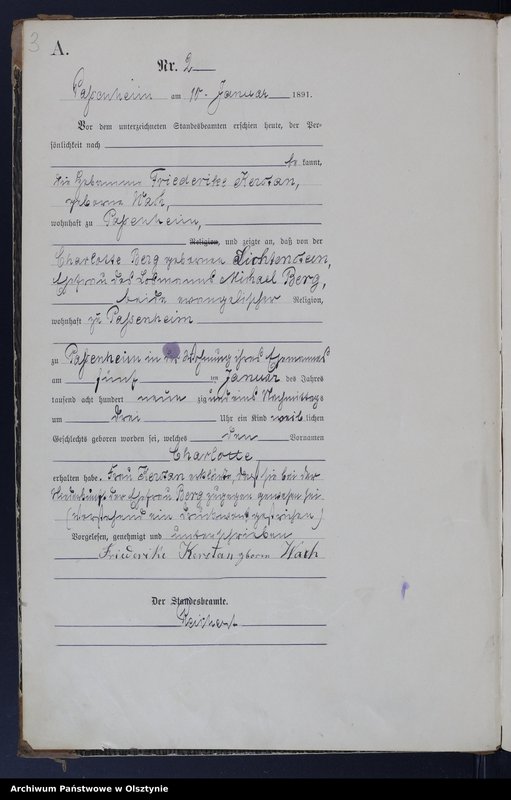 3
A.
Nr. 2
Passenheim am 10. Januar 1891.
Vor dem unterzeichneten Standesbeamten erschien heute, der Per-
sönlichkeit nach
be kannt,
die Hebamme Friederike Kerstan,
geborene Wach,
wohnhaft zu Passenheim,
Religion, und zeigte an, daß von der
Charlotte Berg geborenen Lichtenstein,
Ehefrau des Losmanns Michael Berg,
beide evangelischer Religion,
wohnhaft zu Passenheim
zu Passenheim in der Wohnung ihres Ehemannes
am fünf ten Januar des Jahres
tausend acht hundert neun zig und eins Nachmittags
um drei Uhr ein Kind weib lichen
Geschlechts geboren worden sei, welches den Vornamen
Charlotte
erhalten habe. Frau Kerstan erklärte, daß sie bei der
Niederkunft der Ehefrau Berg zugegen gewesen sei.
(Vorstehend ein Druckwort gestrichen)
Vorgelesen, genehmigt und unterschrieben
Friederike Kerstan geborn Wach
Der Standesbeamte.
Archiwum Państwowe w Olsztynie